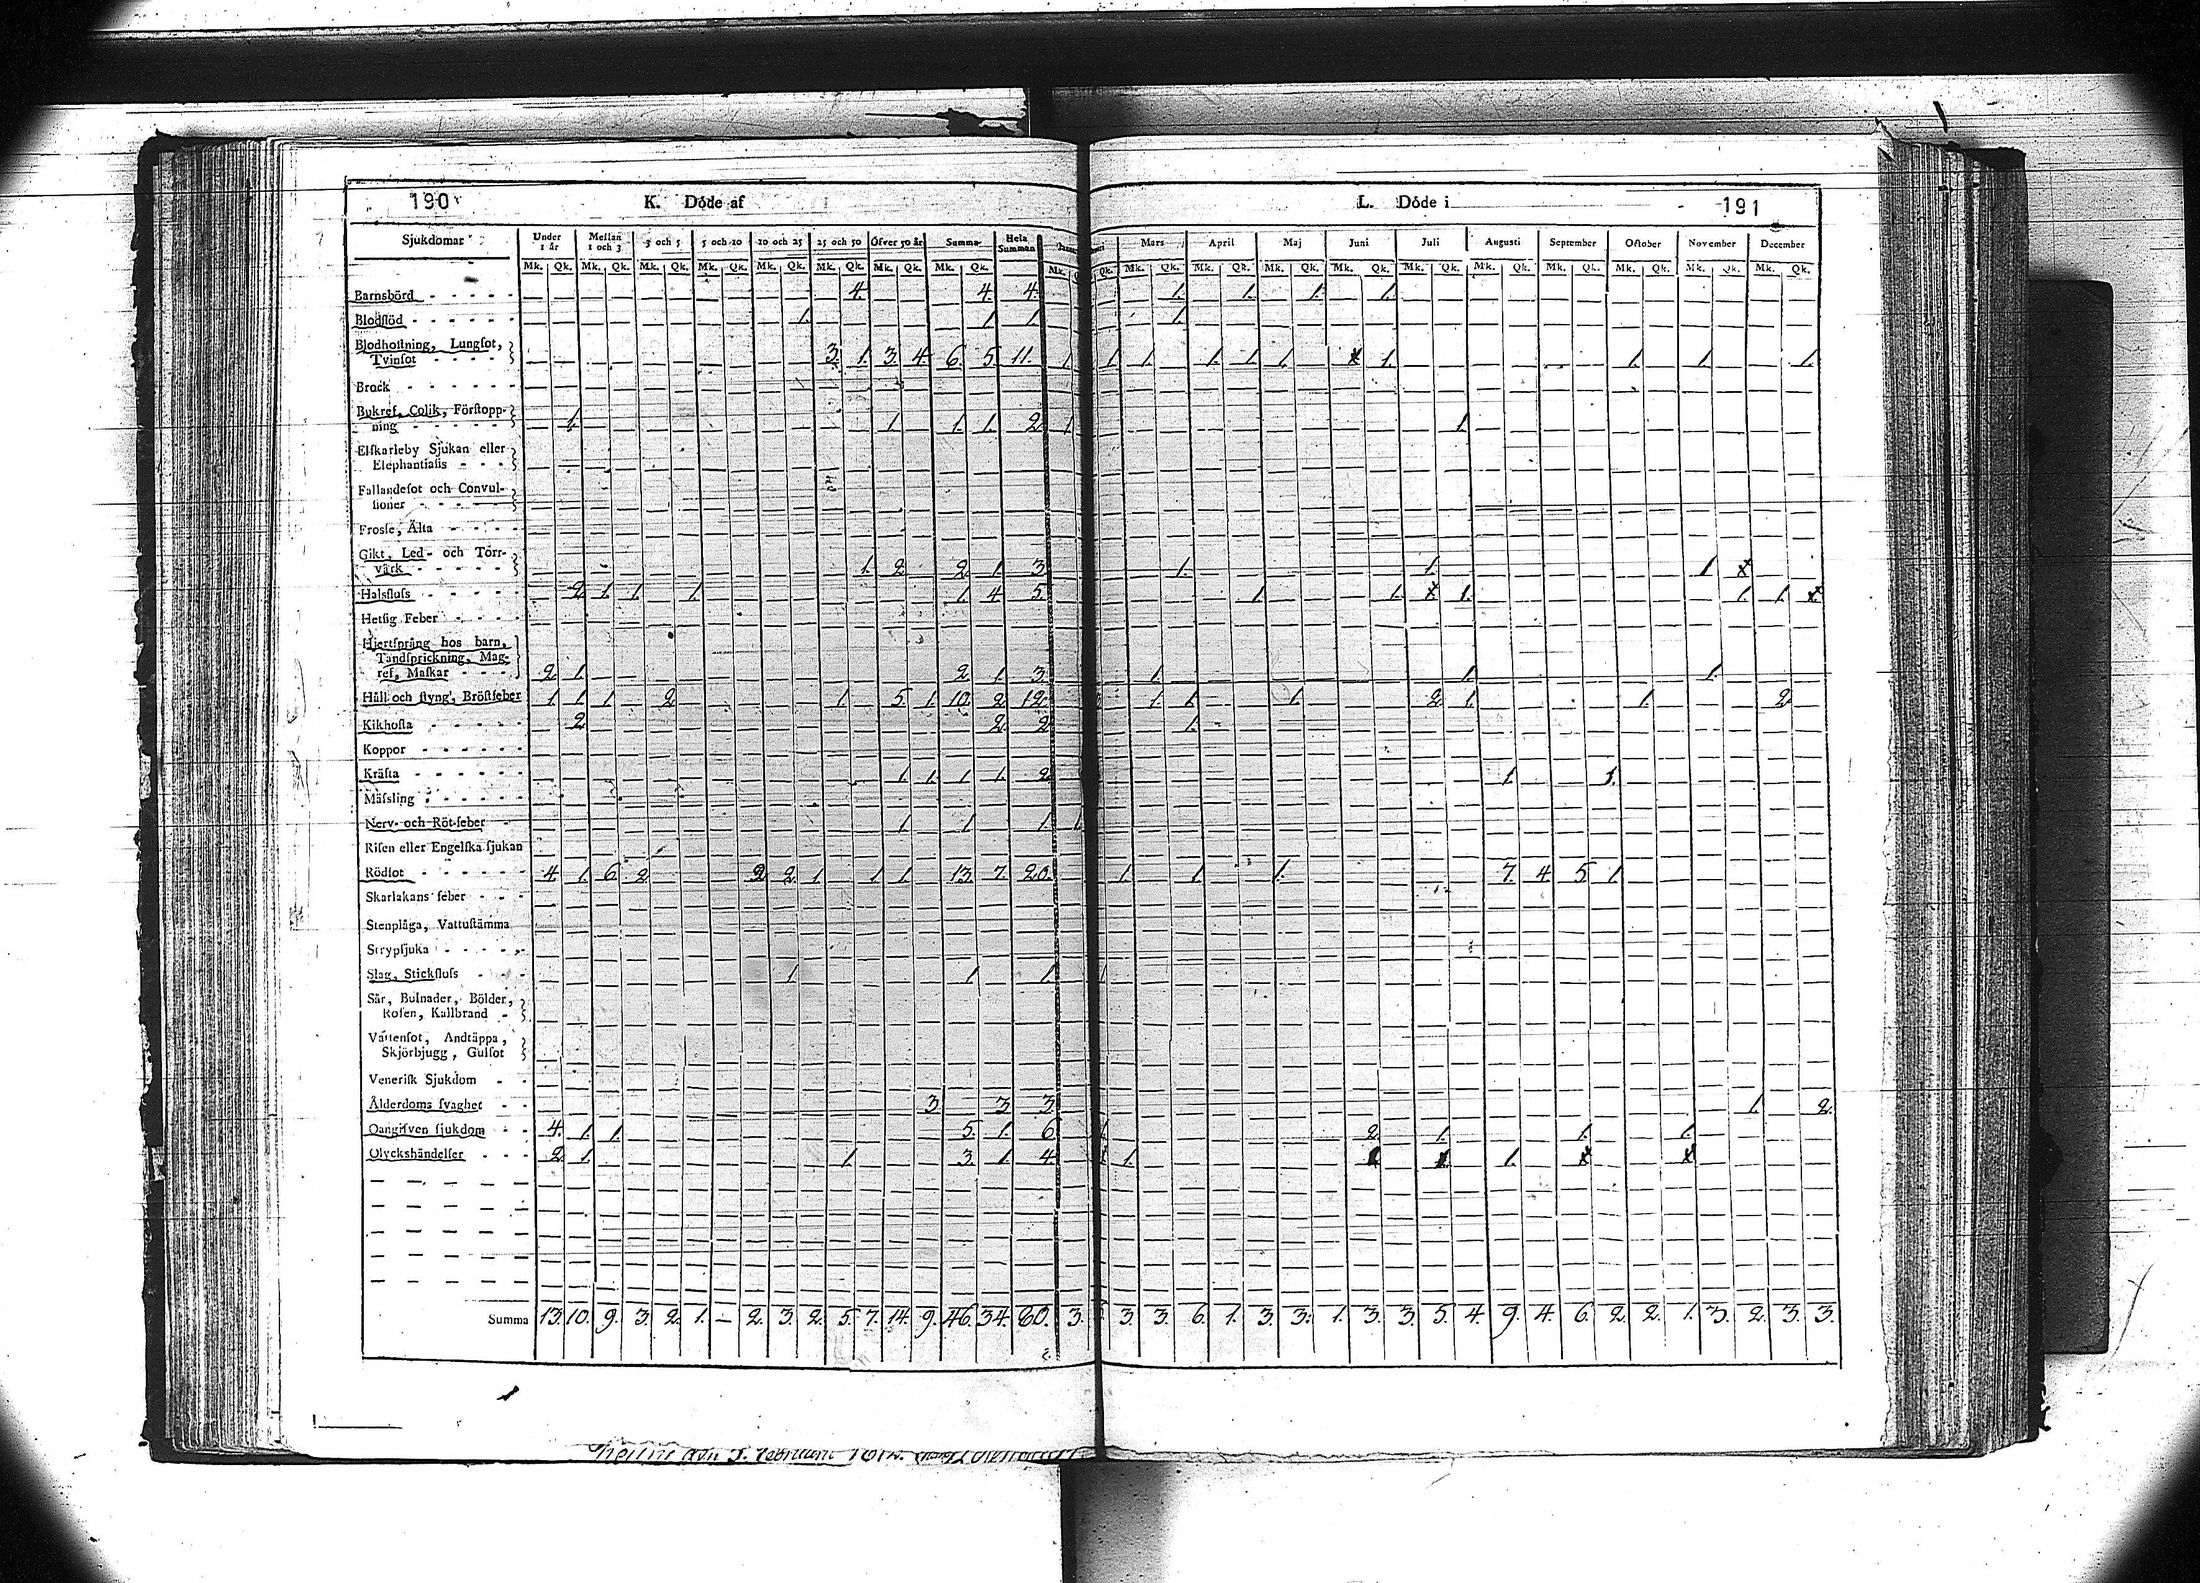 190 K. Döde af
Sjukdomar Under 1 år Mellan 1 och 3 3 och 5 5 och 10 10 och 25 25 och 50 Öfver 50 år Summa Hela Summan
Mk. Qk. Mk. Qk. Mk. Qk. Mk. Qk. Mk. Qk. Mk. Qk. Mk. Qk. Mk. Qk.
Barnsbörd 4. 4. 4.
Blodflöd 1. 1. 1.
Blodhoſtning, Lungſot,
Tvinſot 3. 1. 3. 4. 6. 5. 11.
Brock
Bukref, Colik, Förſtopp-
ning 1. 1. 1. 1. 2.
Elſkarleby Sjukan eller
Elephantiaſis
Fallandeſot och Convul-
ſioner
Frosſe, Älta
Gikt, Led- och Torr-
värk 1. 2. 2. 1. 3.
Halsfluſs 2. 1. 1. 1. 1. 4. 5.
Hetſig Feber
Hjertſprång hos barn,
Tandſprickning, Mag-
ref, Maſkar 2. 1. 2. 1. 3.
Håll och ſtyng, Bröſtfeber 1. 1. 1. 2. 1. 5. 1. 10. 2. 12.
Kikhoſta 2. 2. 2.
Koppor
Kräfta 1. 1. 1. 1. 2.
Mäſsling
Nerv- och Röt-feber 1. 1. 1.
Riſen eller Engelſka ſjukan
Rödſot 4. 1. 6. 2. 2. 2. 1. 1. 1. 13. 7. 20.
Skarlakans feber
Stenplåga, Vattuſtämma
Strypſjuka
Slag, Stickfluſs 1. 1. 1.
Sår, Bulnader, Bölder,
Roſen, Kallbrand
Vattenſot, Andtäppa,
Skjörbjugg, Gulſot
Veneriſk Sjukdom
Ålderdoms ſvaghet 3. 3. 3.
Oangifven ſjukdom 4. 1. 1. 5. 1. 6.
Olyckshändelſer 2. 1. 1. 3. 1. 4.
Summa 13. 10. 9. 3. 2. 1. — 2. 3. 2. 5. 7. 14. 9. 46. 34. 80.
L. Döde i 191
Mars April Maj Juni Juli Augusti September October November December
Mk. Qk. Mk. Qk. Mk. Qk. Mk. Qk. Mk. Qk. Mk. Qk. Mk. Qk. Mk. Qk. Mk. Qk. Mk. Qk.
1. 1. 1. 1.
1.
1. 1. 1. 1. 1. 1. 1. 1. 1. 1.
1. 1.
1. 1. 1.
1. 1. 1. 1. 1.
1. 1. 1.
1. 1. 1. 2. 1. 1. 2.
1.
1. 1.
1. 1. 1. 7. 4. 5. 1.
1. 2.
2. 1. 1. 1.
1. 1.
3. 3. 3. 6. 1. 3. 3. 1. 3. 3. 5. 4. 9. 4. 6. 2. 2. 1. 3. 2. 3. 3.